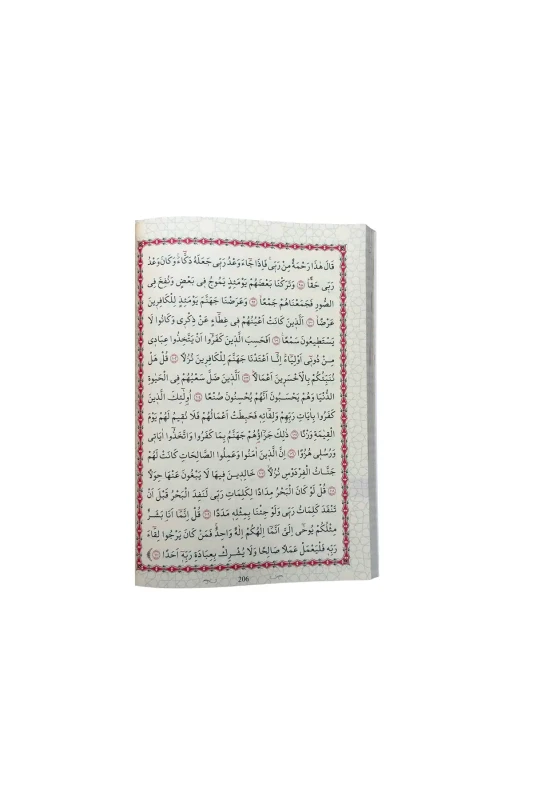 قَالَ هٰذَا رَحْمَةٌ مِنْ رَبّٖى فَاِذَا جَٓاءَ وَعْدُ رَبّٖى جَعَلَهُ دَكَّٓاءَ وَكَانَ وَعْدُ
رَبّٖى حَقًّا وَتَرَكْنَا بَعْضَهُمْ يَوْمَئِذٍ يَمُوجُ فٖى بَعْضٍ وَنُفِخَ فِى
الصُّورِ فَجَمَعْنَاهُمْ جَمْعًا وَعَرَضْنَا جَهَنَّمَ يَوْمَئِذٍ لِلْكَافِرٖينَ
عَرْضًا اَلَّذٖينَ كَانَتْ اَعْيُنُهُمْ فٖى غِطَٓاءٍ عَنْ ذِكْرٖى وَكَانُوا لَا
يَسْتَطٖيعُونَ سَمْعًا اَفَحَسِبَ الَّذٖينَ كَفَرُٓوا اَنْ يَتَّخِذُوا عِبَادٖى
مِنْ دُونٖٓى اَوْلِيَٓاءَ اِنَّٓا اَعْتَدْنَا جَهَنَّمَ لِلْكَافِرٖينَ نُزُلًا قُلْ هَلْ
نُنَبِّئُكُمْ بِالْاَخْسَرٖينَ اَعْمَالًا اَلَّذٖينَ ضَلَّ سَعْيُهُمْ فِى الْحَيٰوةِ
الدُّنْيَا وَهُمْ يَحْسَبُونَ اَنَّهُمْ يُحْسِنُونَ صُنْعًا اُولٰٓئِكَ الَّذٖينَ
كَفَرُوا بِاٰيَاتِ رَبِّهِمْ وَلِقَٓائِهٖ فَحَبِطَتْ اَعْمَالُهُمْ فَلَا نُقٖيمُ لَهُمْ يَوْمَ
الْقِيٰمَةِ وَزْنًا ذٰلِكَ جَزَٓاؤُهُمْ جَهَنَّمُ بِمَا كَفَرُوا وَاتَّخَذُٓوا اٰيَاتٖى
وَرُسُلٖى هُزُوًا اِنَّ الَّذٖينَ اٰمَنُوا وَعَمِلُوا الصَّالِحَاتِ كَانَتْ لَهُمْ
جَنَّاتُ الْفِرْدَوْسِ نُزُلًا خَالِدٖينَ فٖيهَا لَا يَبْغُونَ عَنْهَا حِوَلًا
قُلْ لَوْ كَانَ الْبَحْرُ مِدَادًا لِكَلِمَاتِ رَبّٖى لَنَفِدَ الْبَحْرُ قَبْلَ اَنْ
تَنْفَدَ كَلِمَاتُ رَبّٖى وَلَوْ جِئْنَا بِمِثْلِهٖ مَدَدًا قُلْ اِنَّمَٓا اَنَا بَشَرٌ
مِثْلُكُمْ يُوحٰٓى اِلَىَّ اَنَّمَٓا اِلٰهُكُمْ اِلٰهٌ وَاحِدٌ فَمَنْ كَانَ يَرْجُوا لِقَٓاءَ
رَبِّهٖ فَلْيَعْمَلْ عَمَلًا صَالِحًا وَلَا يُشْرِكْ بِعِبَادَةِ رَبِّهٖٓ اَحَدًا
206